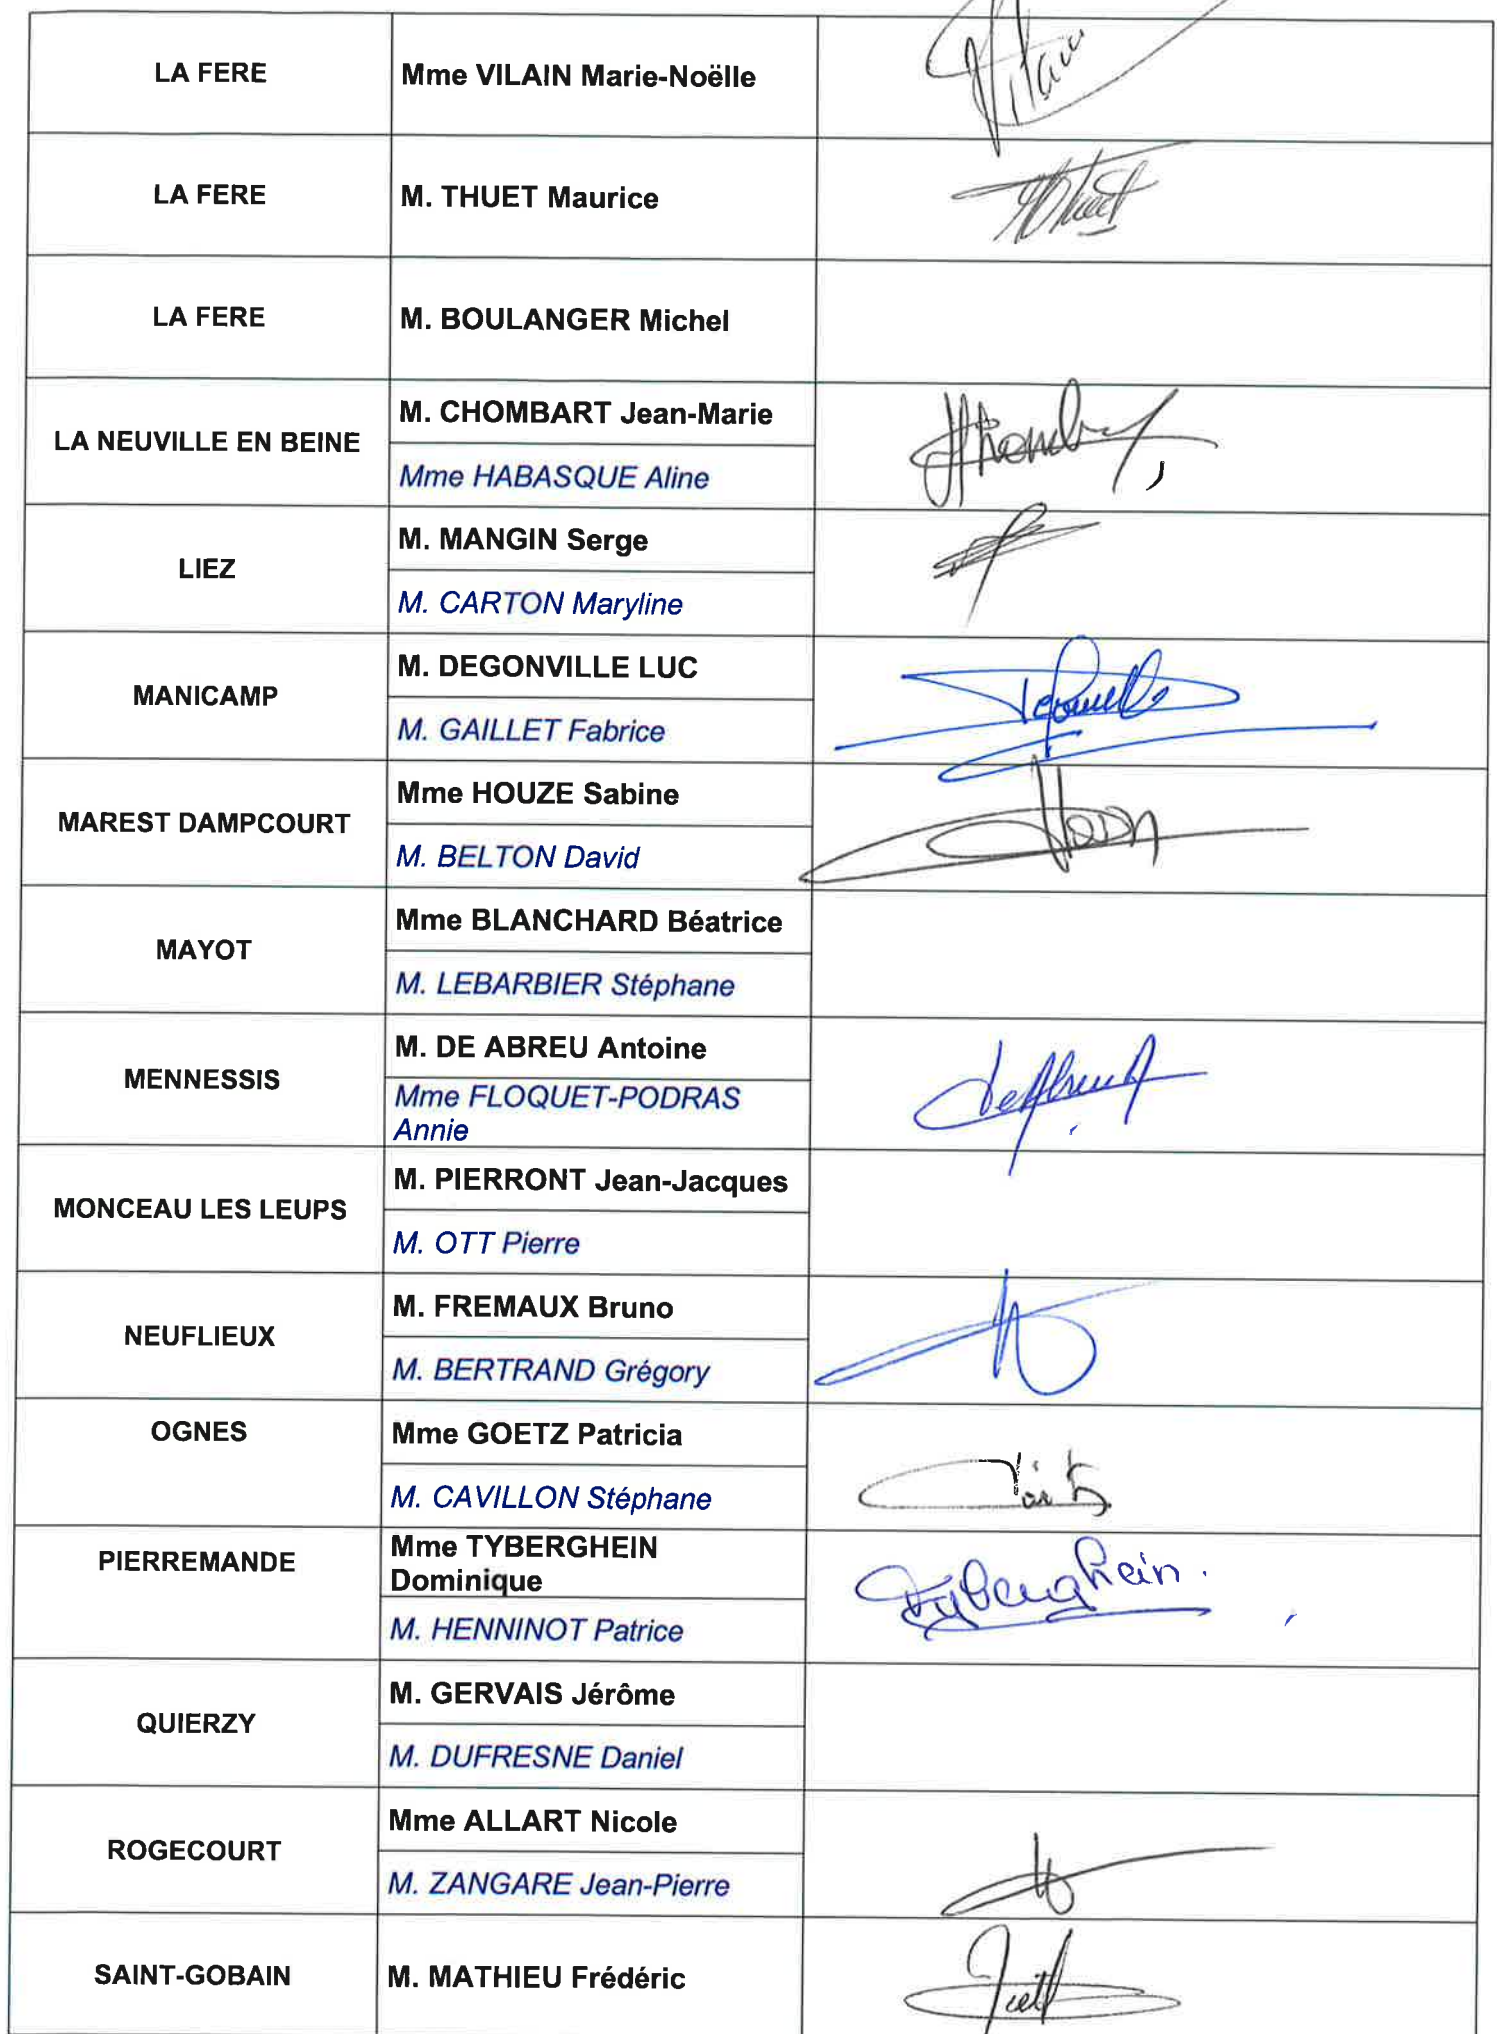 LA FERE
Mme VILAIN Marie-Noëlle
Vilain
LA FERE
M. THUET Maurice
Thuet
LA FERE
M. BOULANGER Michel
LA NEUVILLE EN BEINE
M. CHOMBART Jean-Marie
Mme HABASQUE Aline
LIEZ
M. MANGIN Serge
M. CARTON Maryline
MANICAMP
M. DEGONVILLE LUC
M. GAILLET Fabrice
MAREST DAMPCOURT
Mme HOUZE Sabine
M. BELTON David
MAYOT
Mme BLANCHARD Béatrice
M. LEBARBIER Stéphane
MENNESSIS
M. DE ABREU Antoine
Mme FLOQUET-PODRAS
Annie
MONCEAU LES LEUPS
M. PIERRONT Jean-Jacques
M. OTT Pierre
NEUFLIEUX
M. FREMAUX Bruno
M. BERTRAND Grégory
OGNES
Mme GOETZ Patricia
M. CAVILLON Stéphane
PIERREMANDE
Mme TYBERGHEIN
Dominique
M. HENNINOT Patrice
Tyberghein.
QUIERZY
M. GERVAIS Jérôme
M. DUFRESNE Daniel
ROGECOURT
Mme ALLART Nicole
M. ZANGARE Jean-Pierre
SAINT-GOBAIN
M. MATHIEU Frédéric